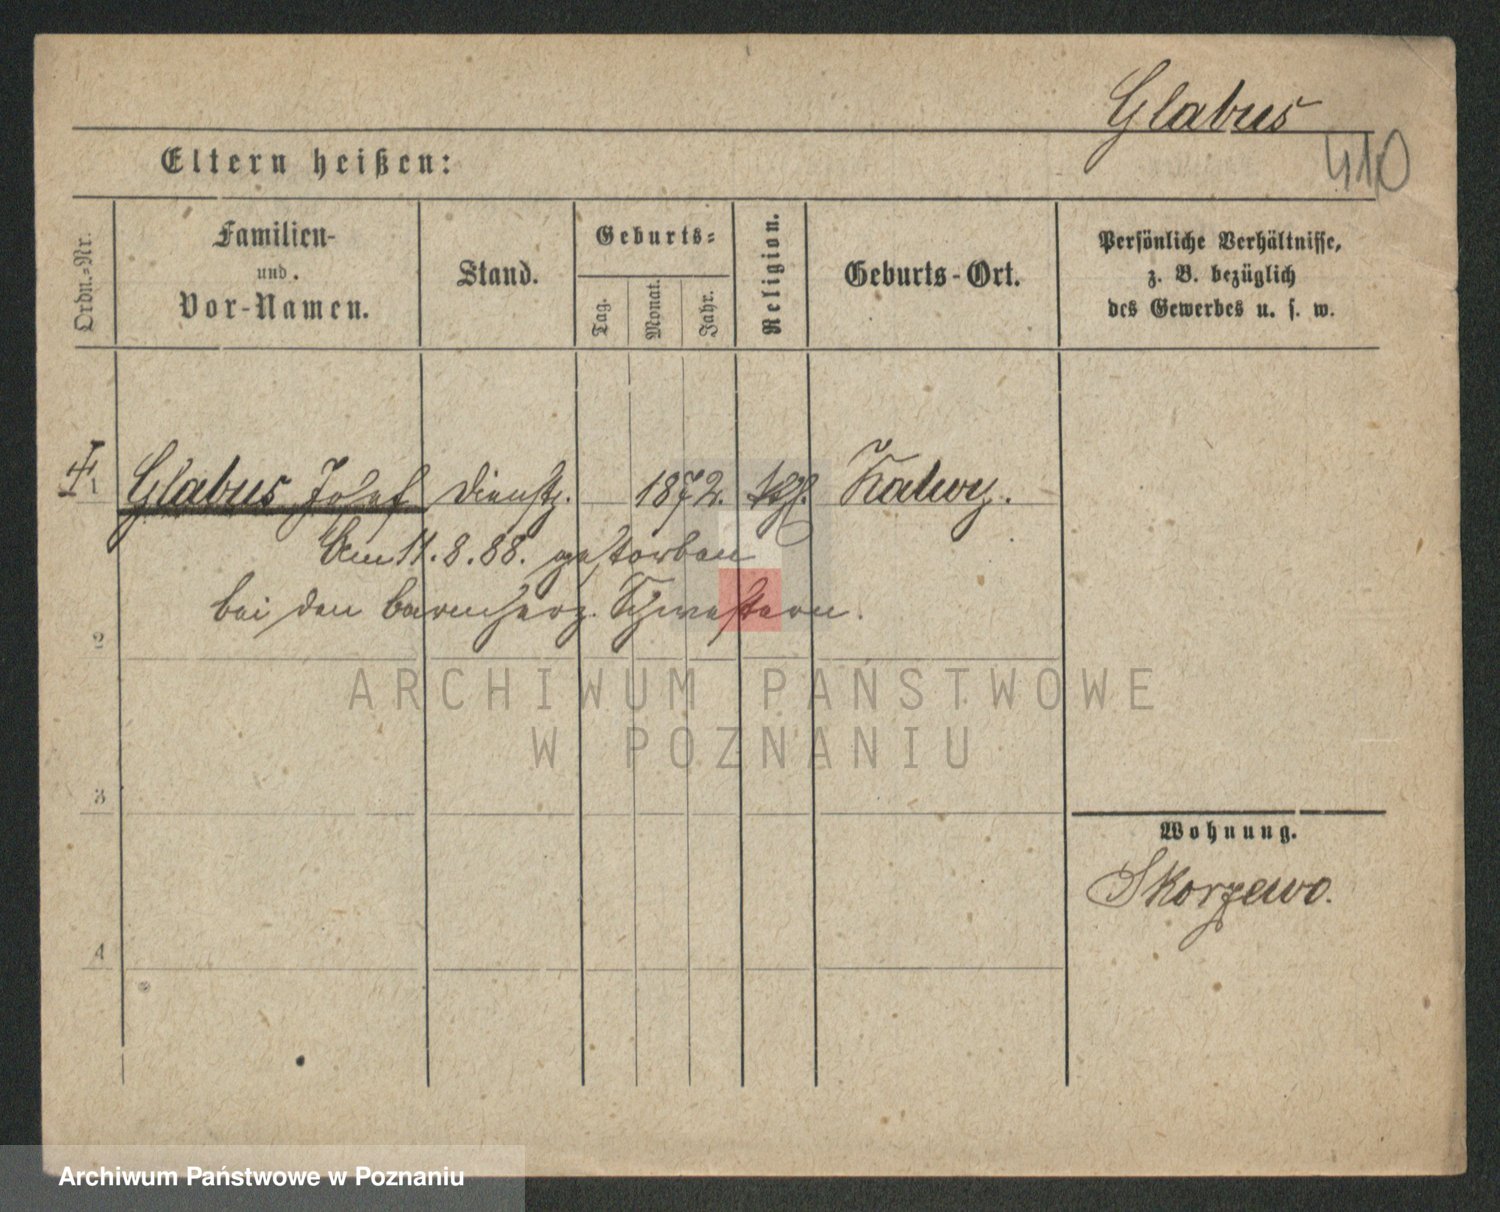 Glabus
410
Eltern heißen:
Ordn.=Nr.
Familien-
und
Vor-Namen.
Stand.
Geburts=
Tag.
Monat.
Jahr.
Religion.
Geburts-Ort.
Persönliche Verhältnisse,
z. B. bezüglich
des Gewerbes u. s. w.
1 Glabus Josef Dienstj. 1872. kth. Kalwy.
Am 11.8.88. gestorben
bei den barmherz. Schwestern.
2
3
4
Wohnung.
Skorzewo.
ARCHIWUM PAŃSTWOWE
W POZNANIU
Archiwum Państwowe w Poznaniu